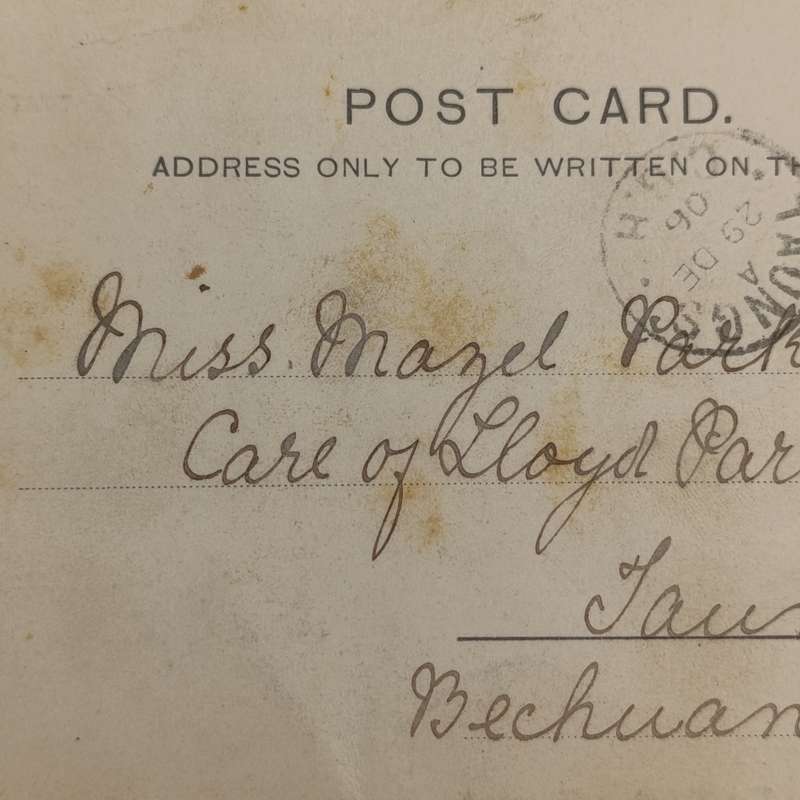 POST CARD.
ADDRESS ONLY TO BE WRITTEN ON TH
TAUNGS
A
29 DE
06
Miss. Mazel Park
Care of Lloyd Par
Taun
Bechuan